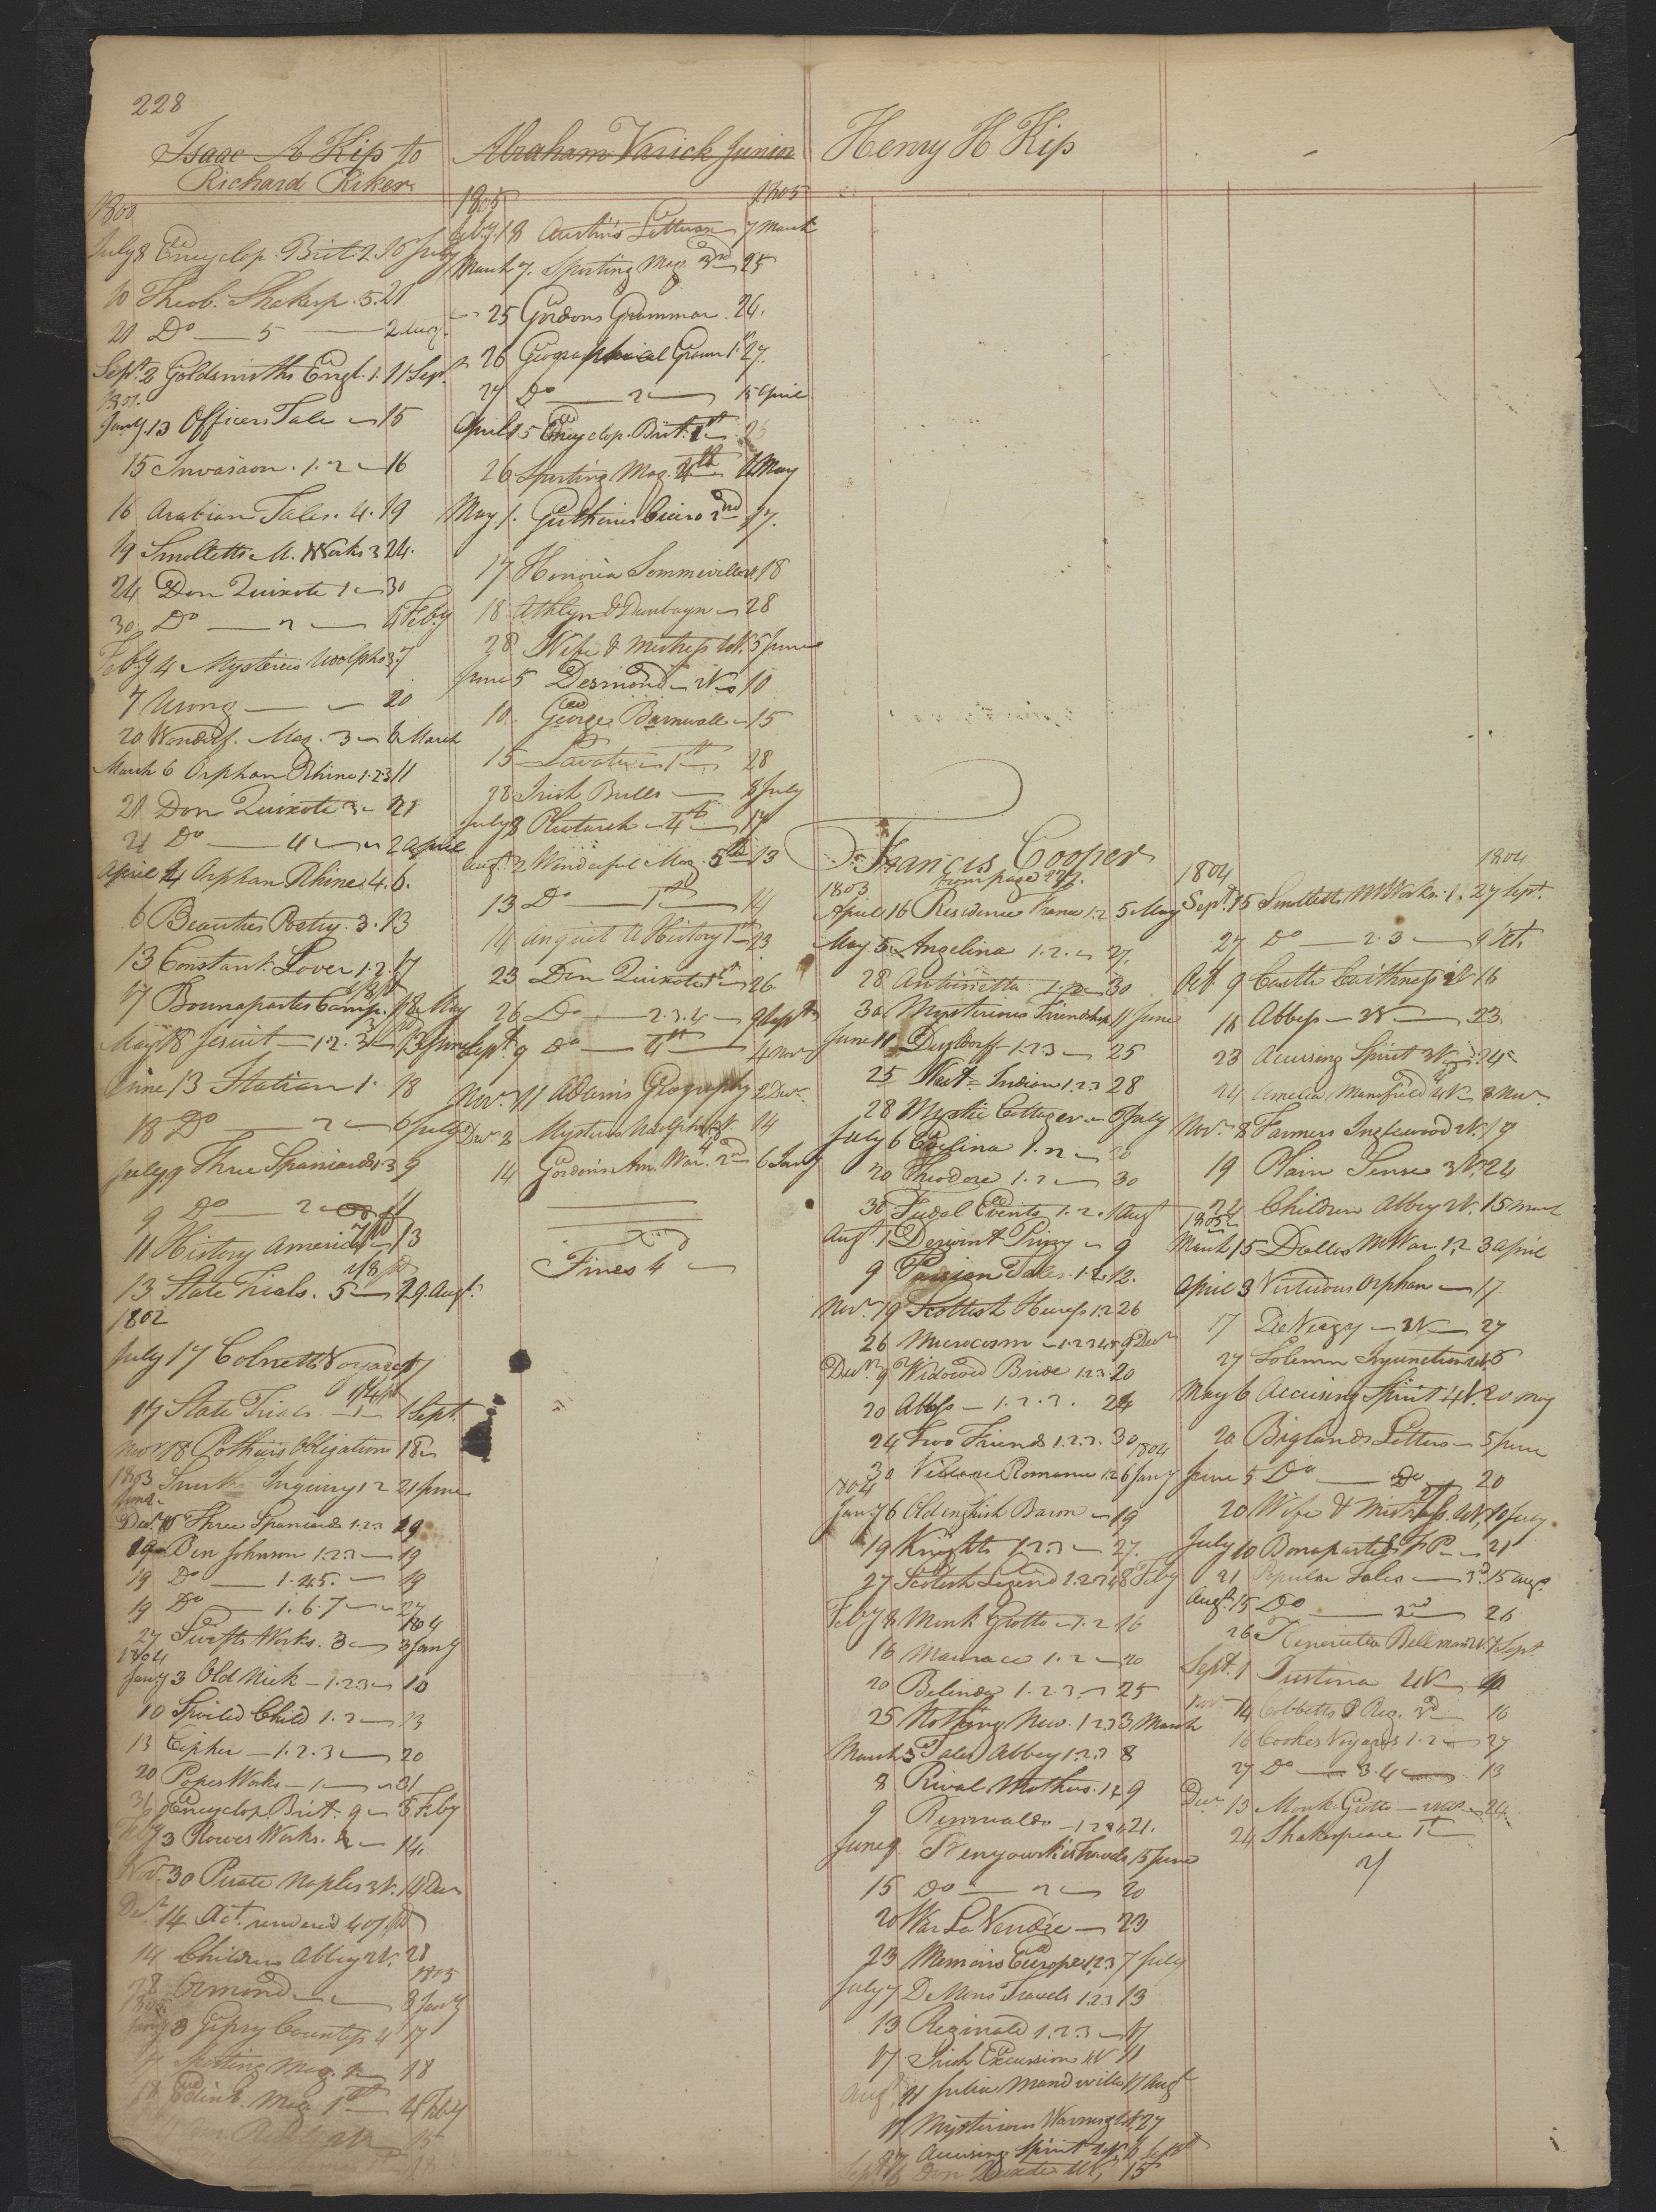 228
Isaac A Kip to
Richard Riker
1800
July 8 Encyclop. Brit. 2. 10 July
10 Theob. Shaksp. 5. 21
21 Do — 5 — 2 Aug.
Sept. 2 Goldsmiths Engl. 1. 11 Sept.
1801.
Jany. 13 Officers Tale — 15
15 Invasion. 1. 2 — 16
16 Arabian Tales. 4. 19
19 Smolletts M. Works 3 24.
24 Don Quixote 1 — 30
30 Do — 2 — 4 Feby
Feby 4 Mysteries Udolpho 3. 7
7 Usong — 20
20 Wonderf. Mag. 3 — 6 March
March 6 Orphan Rhine 1.2.3 11
21 Don Quixote 3 — 21
21 Do — 4 — 2 April
April 2 Orphan Rhine 4. 6.
6 Beauties Poetry. 3. 13
13 Constant Lover 1.2. 17
17 Bounapartes Camp. 18 May
May 18 Jesuit — 1.2.3 — 13 June
June 13 Italian 1. 18
18 Do — 2 — 6 July
July 9 Three Spaniards 1.3 9
9 Do — 2 — 11
11 History America 13
13 State Trials. 5 — 29. Augt.
1802
July 17 Colnetts Voyage 17
17 State Trials — 1 Sept.
Novr 18 Pothiers Obligations 18
1803 Smith Inquiry 1 2 21 June
June
Decr. Three Spaniards 1.2.3 19
19 Ben Johnson 1.2.3 — 19
19 Do — 1.4.5. — 19
19 Do — 1.6.7 — 27
1804
27 Swifts Works. 3 — 3 Jany
1804
Jany 3 Old Nick — 1.2.3 — 10
10 Spoiled Child 1.2 — 13
13 Cipher — 1.2.3 — 20
20 Popes Works — 1 — 31
31 Encyclop. Brit. 9 — 3 Feby
Feby 3 Rowes Works. 2 — 14.
Nov. 30 Pirate Naples 3V. 14 Decr
Decr 14 Act. rendered
14 Children Abbey 2V. 28
1805
28 Ormond — 3 Jany
1805
Jany 3 Gipsy Countess 4 17
17 Sporting Mag. — 18
18 Edinb. Mag. 1st — 4 Feby
Abraham Varick Junior
1805 1805
Feby. 18 Austins Letters 7 March
March 7. Sporting Mag. 3rd — 25
25 Gordons Grammar. 26.
26 Geographical Gram 1st 27.
27 Do — 2 — 15 April
April 15 Encyclop. Brit. 1st 26
26 Sporting Mag. 4th 1 May
May 1. Guthries Cicero 2nd 17.
17 Honoria Sommerville 18
18 Athlyn & Dunbayn — 28
28 Wife & Mistress 4V. 5 June
June 5 Desmond — 2V — 10
10. George Barnwell — 15
15 Lavater — 1st — 28
28 Irish Bulls — 8 July
July 8 Plutarch — 4th — 17
Augt. 2 Wonderful Mag. 5th 13
13 Do — 1st — 14
14 Anquit. U History 1st 23
23 Don Quixote 1st 26
26 Do — 2.3.4 — 9 Septr
Sept. 9 Do — 4th — 4 Novr
Novr. 11 Adams Geography 2 Decr.
Decr 2 Mysteries Udolpho 14
14 Gordons Am. War. 2nd 6 Jany
Fines 4
Henry H Kip
Francis Cooper
from page
1803
April 16 Residence France 1.2 5 May
May 5 Angelina 1.2. — 27.
28 Antoinetta 1.2 — 30
30 Mysterious Friendship 11 June
June 11 Dusseldorf — 1.2.3 — 25
25 West Indian 1.2.3 28
28 Mystic Cottager — 6 July
July 6 Evelina 1.2 — 20
20 Theodore 1.2 — 30
30 Feudal Events 1.2. 1 Augt
Augt. 1 Derwent Priory — 9
9 Persian Tales 1.2. 12.
Novr 19 Scottish Heiress 1.2 26
26 Microcosm — 1.2.3.4.5 9 Decr
Decr 9 Widowed Bride 1.2.3 20
20 Abbess — 1.2.3. 24
24 Two Friends 1.2.3. 30
1804
30 Village Romance 1.2 6 Jany
1804
Jany 6 Old english Baron — 19
19 Knights 1.2.3 — 27.
27 Scotish Legend 1.2.3.4 8 Feby
Feby 8 Monk Grotto — 1.2 16
16 Maniac 1.2 — 20
20 Belinda 1.2.3. — 25
25 Nothing New. 1.2.3 3 March
March 3 Tales Abbey 1.2.3 8
8 Rival Mothers. 1.2 9
9 Rimualdo — 1.2.3.4. 21.
June 9 Benyowskis Travels 15 June
15 Do — 2 — 20
20 War La Vendée — 23
23 Memoirs Europe 1.2.3 7 July
July 7 De Nons Travels 1.2.3 13
13 Reginald 1.2.3 — 17
17 Irish Excursion 4V 11
Augt. 11 Julia Mandeville 17 Augt
17 Mysterious Warnings 4V. 27
27 Accusing Spirit 2V. 6 Sept
Sept 6 Don Quixote 4V, 15
1804 1804
Sept. 15 Smolletts M Works. 1. 27 Sept.
27 Do — 2.3 — 9 Oct.
Oct. 9 Castle Caithness 2V 16
16 Abbess — 2V — 23
23 Accusing Spirit 3V 24
24 Amelia Mansfield 4V — 8 Novr
Novr. 8 Farmers Inglewood 2V. 19
19 Plain Sense 3V. 24
24 Children Abbey 2V. 15 March
1805
March 15 Dallas M War. 1.2 3 April
April 3 Virtuous Orphan — 17.
17 De Vergy — 3V — 27
27 Solemn Injunction 4V. 6
May 6 Accusing Spirit 4V. 20 May
20 Biglands Letters — 5 June
June 5 Do — Do — 20
20 Wife & Mistress. 4V, 10 July
July 10 Bonapartes — 21
21 Popular Tales — 3d. 15 Augt
Augt. 15 Do — 2nd — 26
26 Henrietta Bellman 2V. 1 Sept
Sept. 1 Justina 2V —
Novr 14 Cobbetts Reg. 2d — 16
16 Cookes Voyages 1.2 — 27
27 Do — 3.4 — 13
Decr 13 Monk Grotto — — 24
24 Shakespeare 1st —